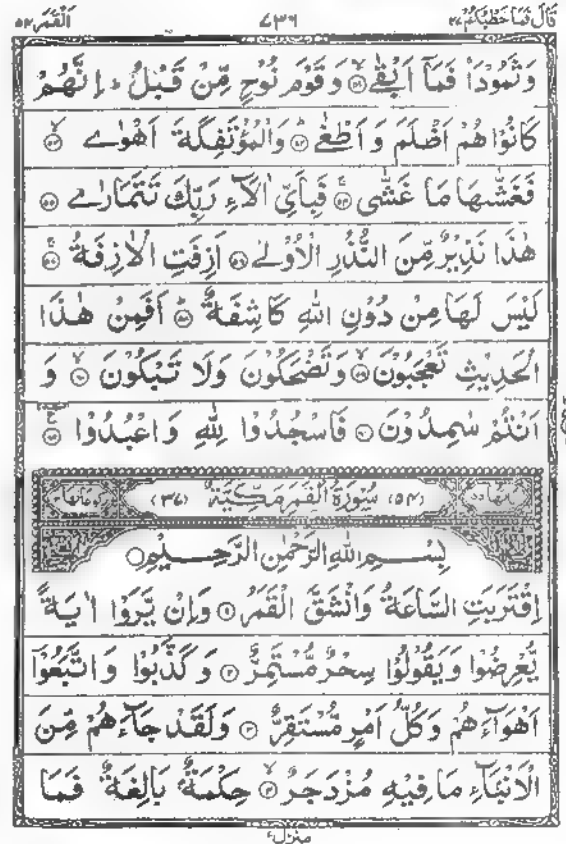 قَالَ فَمَا خَطْبُكُمْ ٢٧ ٧٣٦ اَلْقَمَر ٥٤
وَثَمُوْدَا۟ فَمَاۤ اَبْقٰىۙ‏﴿۵۱﴾ وَقَوْمَ نُوْحٍ مِّنْ قَبْلُ ؕ اِنَّهُمْ
كَانُوْا هُمْ اَظْلَمَ وَ اَطْغٰىؕ‏﴿۵۲﴾ وَالْمُؤْتَفِكَةَ اَهْوٰىۙ‏﴿۵۳﴾
فَغَشّٰٮهَا مَا غَشّٰى‌ۚ‏﴿۵۴﴾ فَبِاَىِّ اٰلَاۤءِ رَبِّكَ تَتَمَارٰى‏﴿۵۵﴾
هٰذَا نَذِيْرٌ مِّنَ النُّذُرِ الْاُوْلٰى‏﴿۵۶﴾ اَزِفَتِ الْاٰزِفَةُ‌ۚ‏﴿۵۷﴾
لَيْسَ لَهَا مِنْ دُوْنِ اللّٰهِ كَاشِفَةٌ ؕ‏﴿۵۸﴾ اَفَمِنْ هٰذَا
الْحَدِيْثِ تَعْجَبُوْنَۙ‏﴿۵۹﴾ وَتَضْحَكُوْنَ وَلَا تَبْكُوْنَۙ‏﴿۶۰﴾ وَ
اَنْتُمْ سٰمِدُوْنَ‏﴿۶۱﴾ فَاسْجُدُوْا لِلّٰهِ وَاعْبُدُوْا‏﴿۶۲﴾
(٥٤) سُوْرَةُ الْقَمَرِ مَكِّيَّةٌ (٣٧)
بِسْمِ اللّٰهِ الرَّحْمٰنِ الرَّحِيْمِ
اِقْتَرَبَتِ السَّاعَةُ وَانْشَقَّ الْقَمَرُ‏﴿۱﴾ وَاِنْ يَّرَوْا اٰيَةً
يُّعْرِضُوْا وَيَقُوْلُوْا سِحْرٌ مُّسْتَمِرٌّ‏﴿۲﴾ وَكَذَّبُوْا وَاتَّبَعُوْۤا
اَهْوَآءَهُمْ وَكُلُّ اَمْرٍ مُّسْتَقِرٌّ‏﴿۳﴾ وَلَقَدْ جَآءَهُمْ مِّنَ
الْاَنْۢبَآءِ مَا فِيْهِ مُزْدَجَرٌۙ‏﴿۴﴾ حِكْمَةٌۢ بَالِغَةٌ فَمَا
منزل